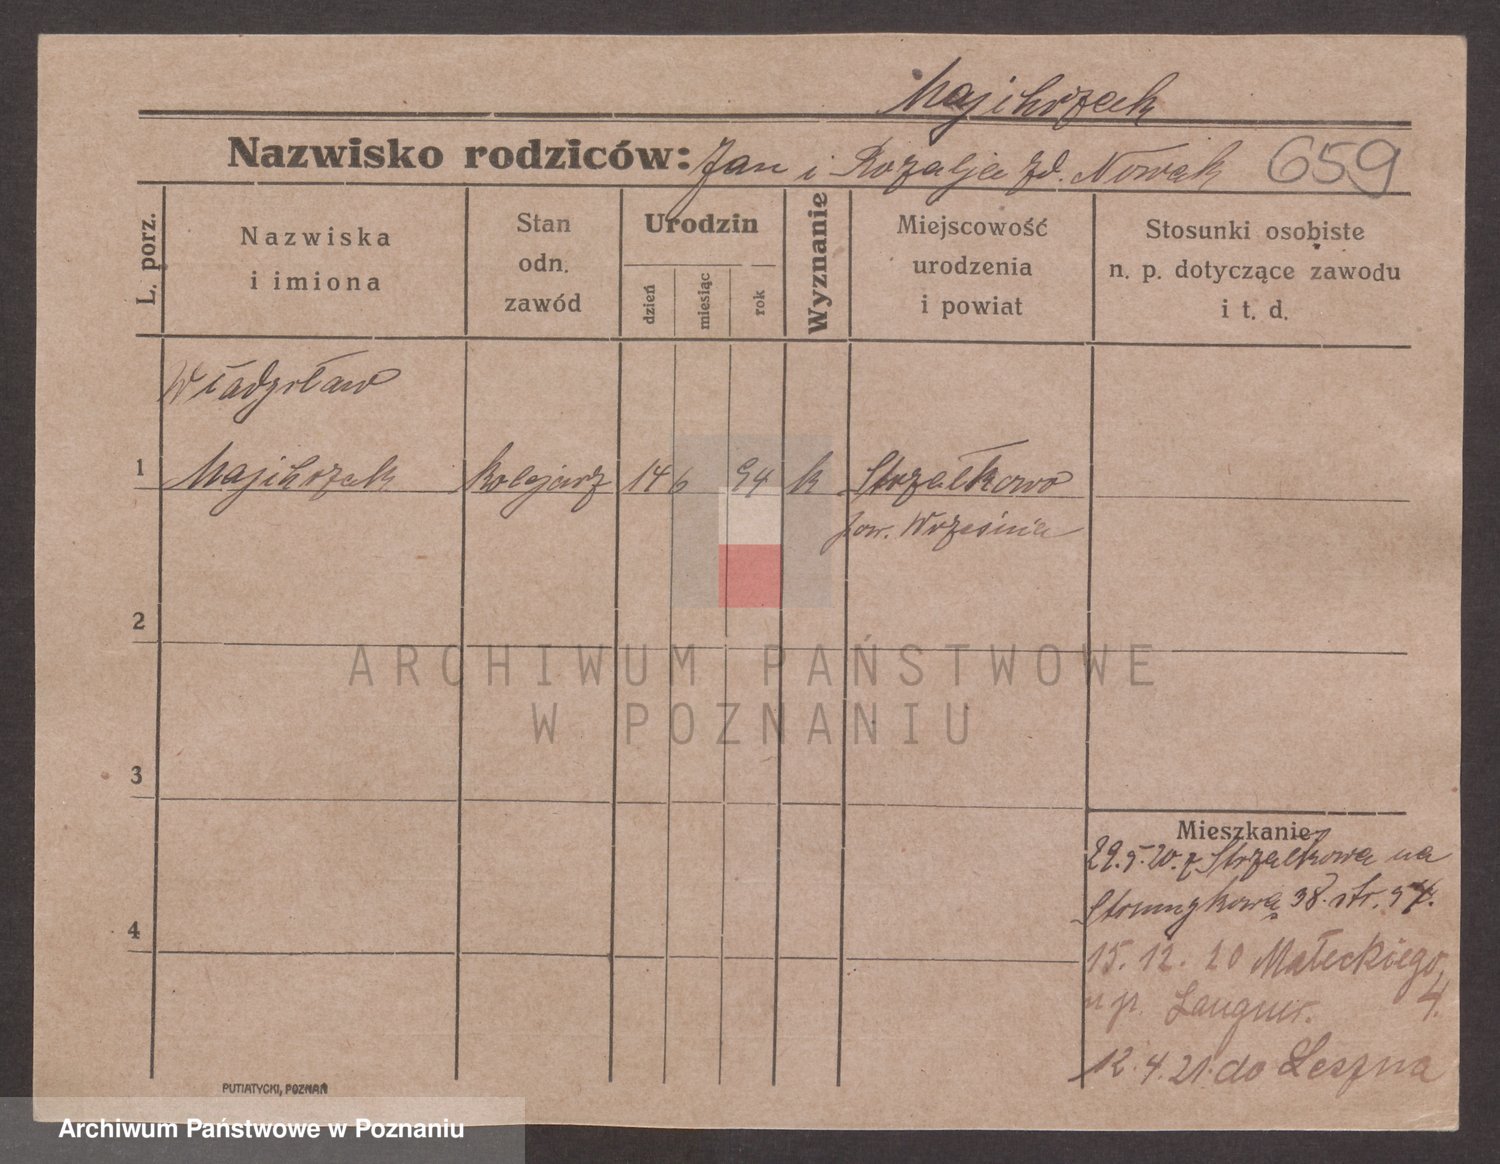 Majchrzak
Nazwisko rodziców: Jan i Rozalja zd. Nowak 659
L. porz.
Nazwiska
i imiona
Stan
odn.
zawód
Urodzin
dzień
miesiąc
rok
Wyznanie
Miejscowość
urodzenia
i powiat
Stosunki osobiste
n. p. dotyczące zawodu
i t. d.
Władysław
1 Majchrzak kolejarz 14 6 94 k Strzałkowo
pow. Września
2
3
4
Mieszkanie
29.5.20. z Strzałkowa na
38. str.
15. 12. 20 Małeckiego 4.
u p.
12. 4. 21. do Leszna
PUTIATYCKI, POZNAŃ
ARCHIWUM PAŃSTWOWE
W POZNANIU
Archiwum Państwowe w Poznaniu